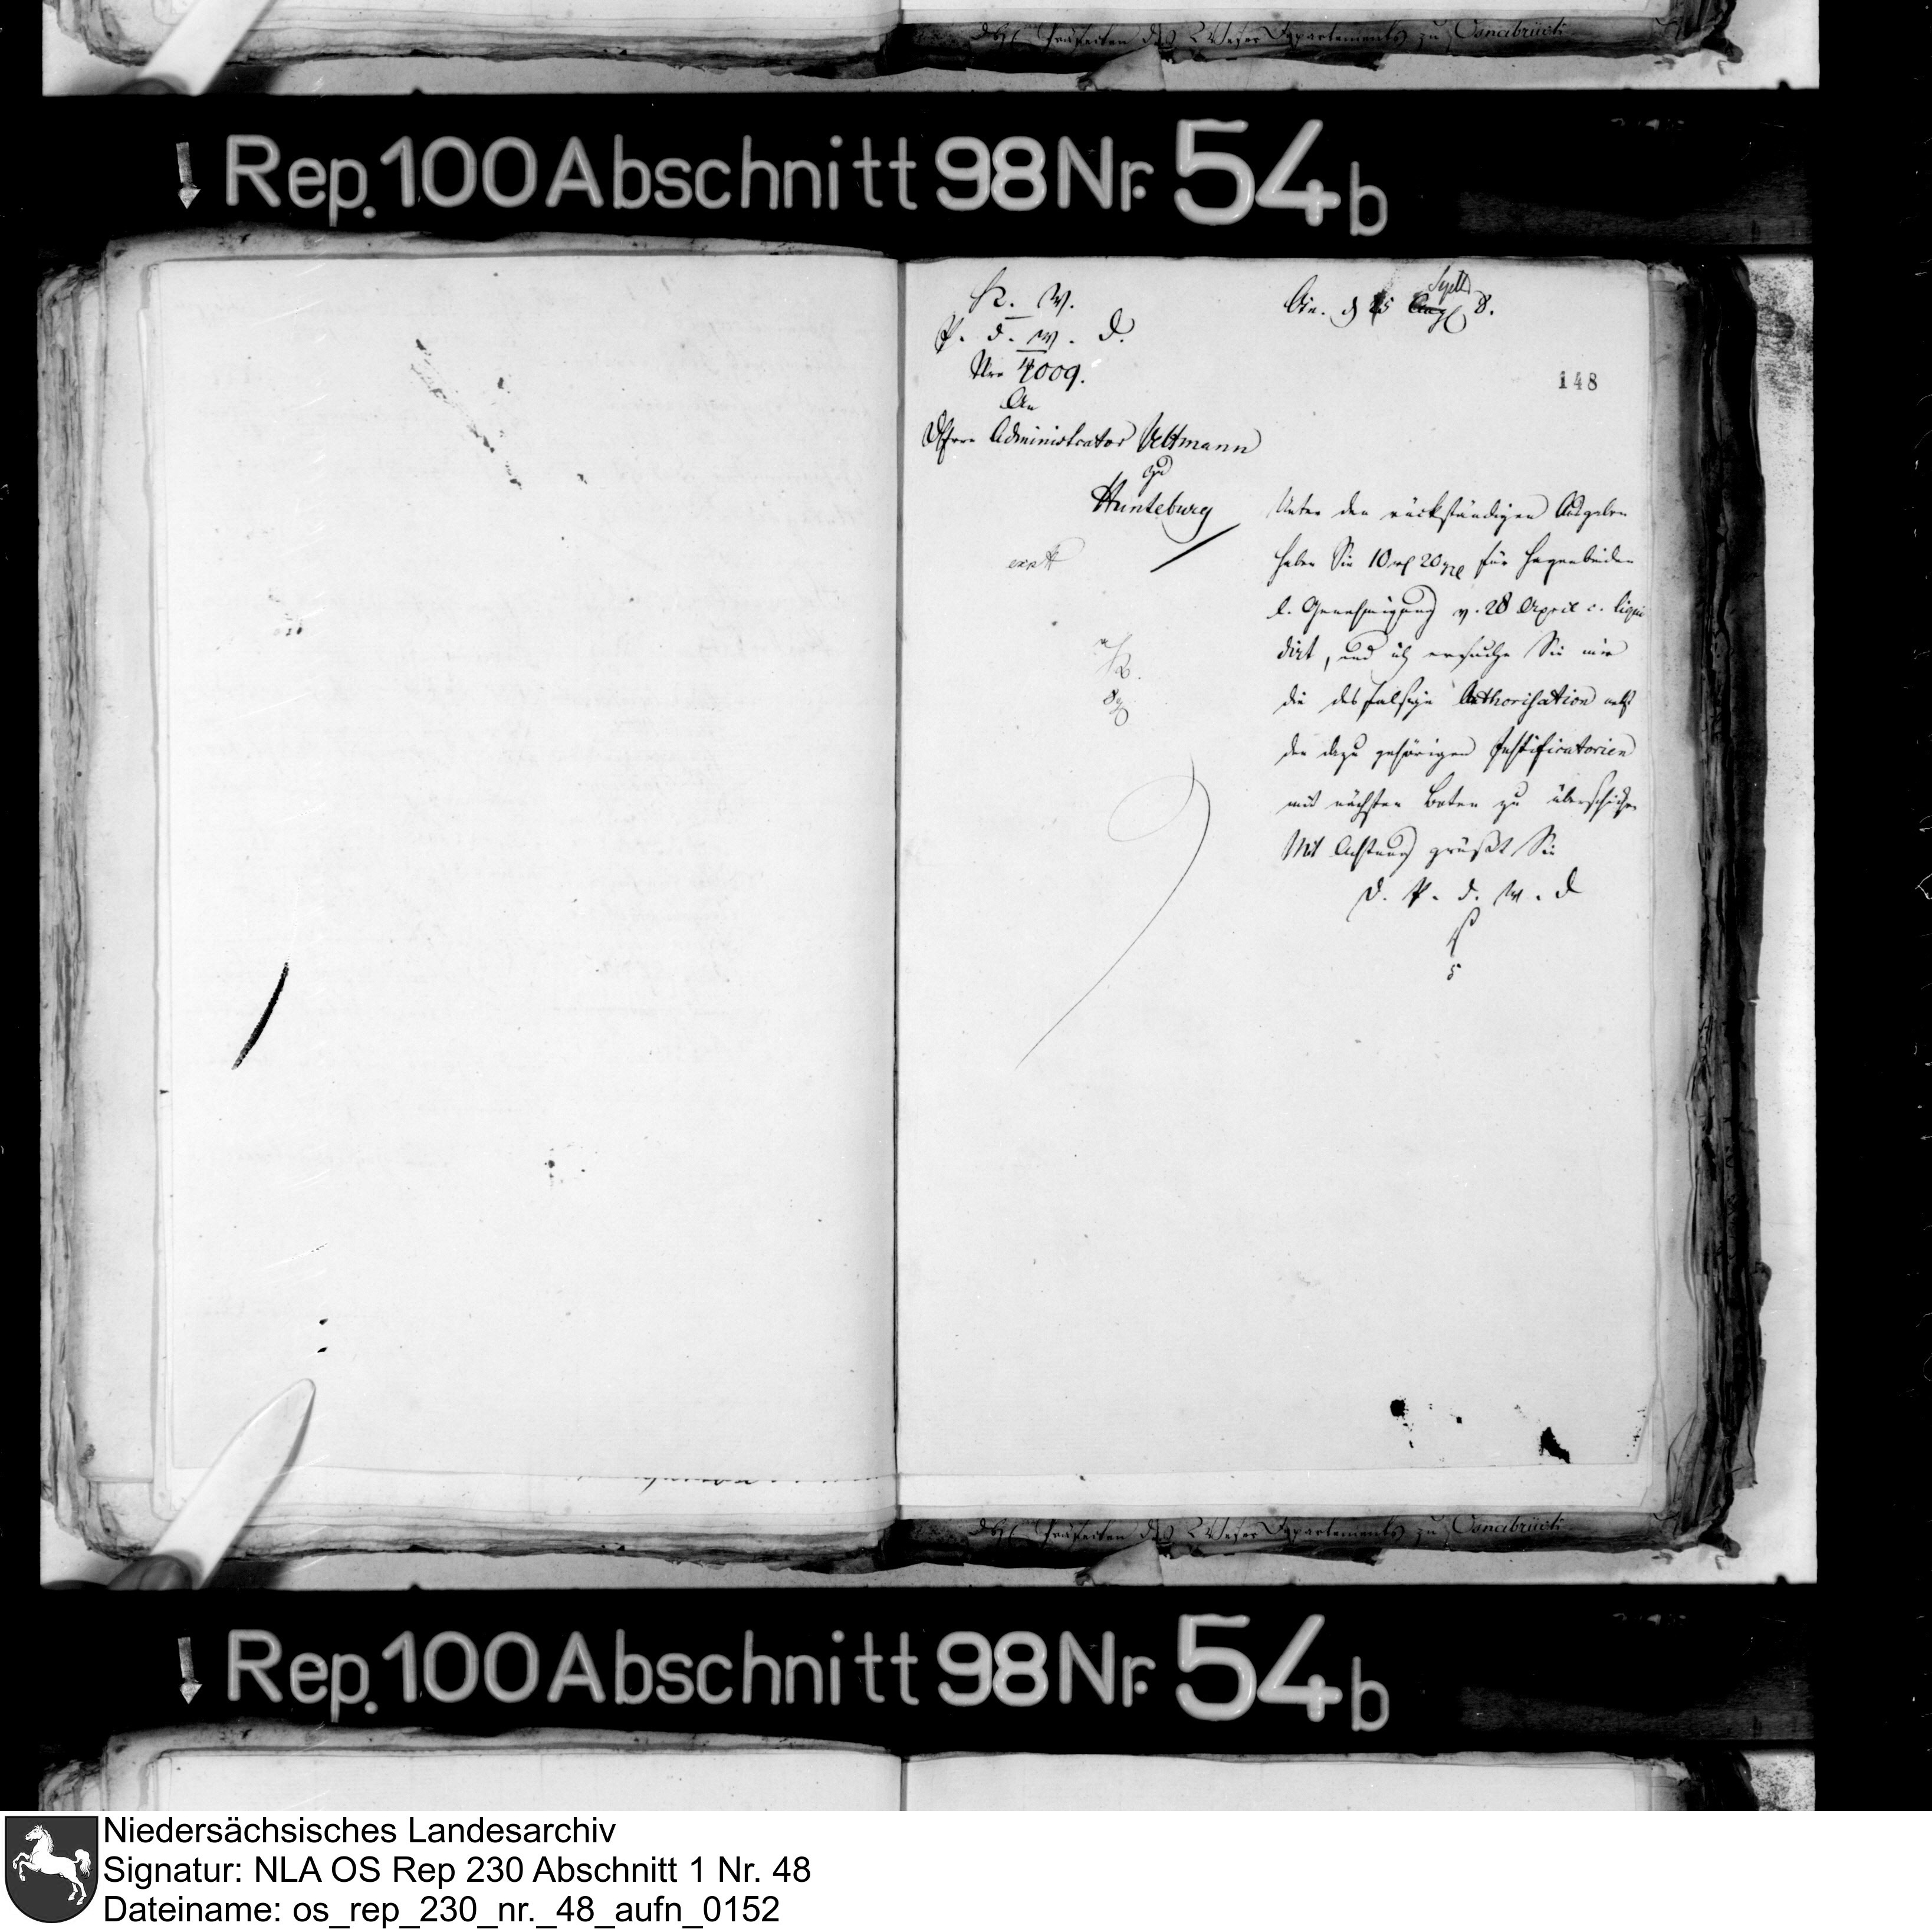 des Präfecten des Weser Departements zu Osnabrück
Rep. 100 Abschnitt 98 Nr. 54b
K. W.
P. d. W. D.
Nro 4009.
An
Herrn Administrator Veltmann
zu
Hunteburg
Sept
Osn. d 5 Aug 8.
148
Unter den rückständigen Ausgaben
haben Sie 10 rl 20 für
l. Genehmigung v. 28 April c. liqui
dirt, und ich ersuche Sie mir
die desfalsige Authorisation nebst
den dazu gehörigen Justificatorien
mit nächsten Boten zu überschicken
Mit Achtung grüßt Sie
D. P. d. W. D
des Präfecten des Weser Departements zu Osnabrück
Rep. 100 Abschnitt 98 Nr. 54b
Niedersächsisches Landesarchiv
Signatur: NLA OS Rep 230 Abschnitt 1 Nr. 48
Dateiname: os_rep_230_nr._48_aufn_0152